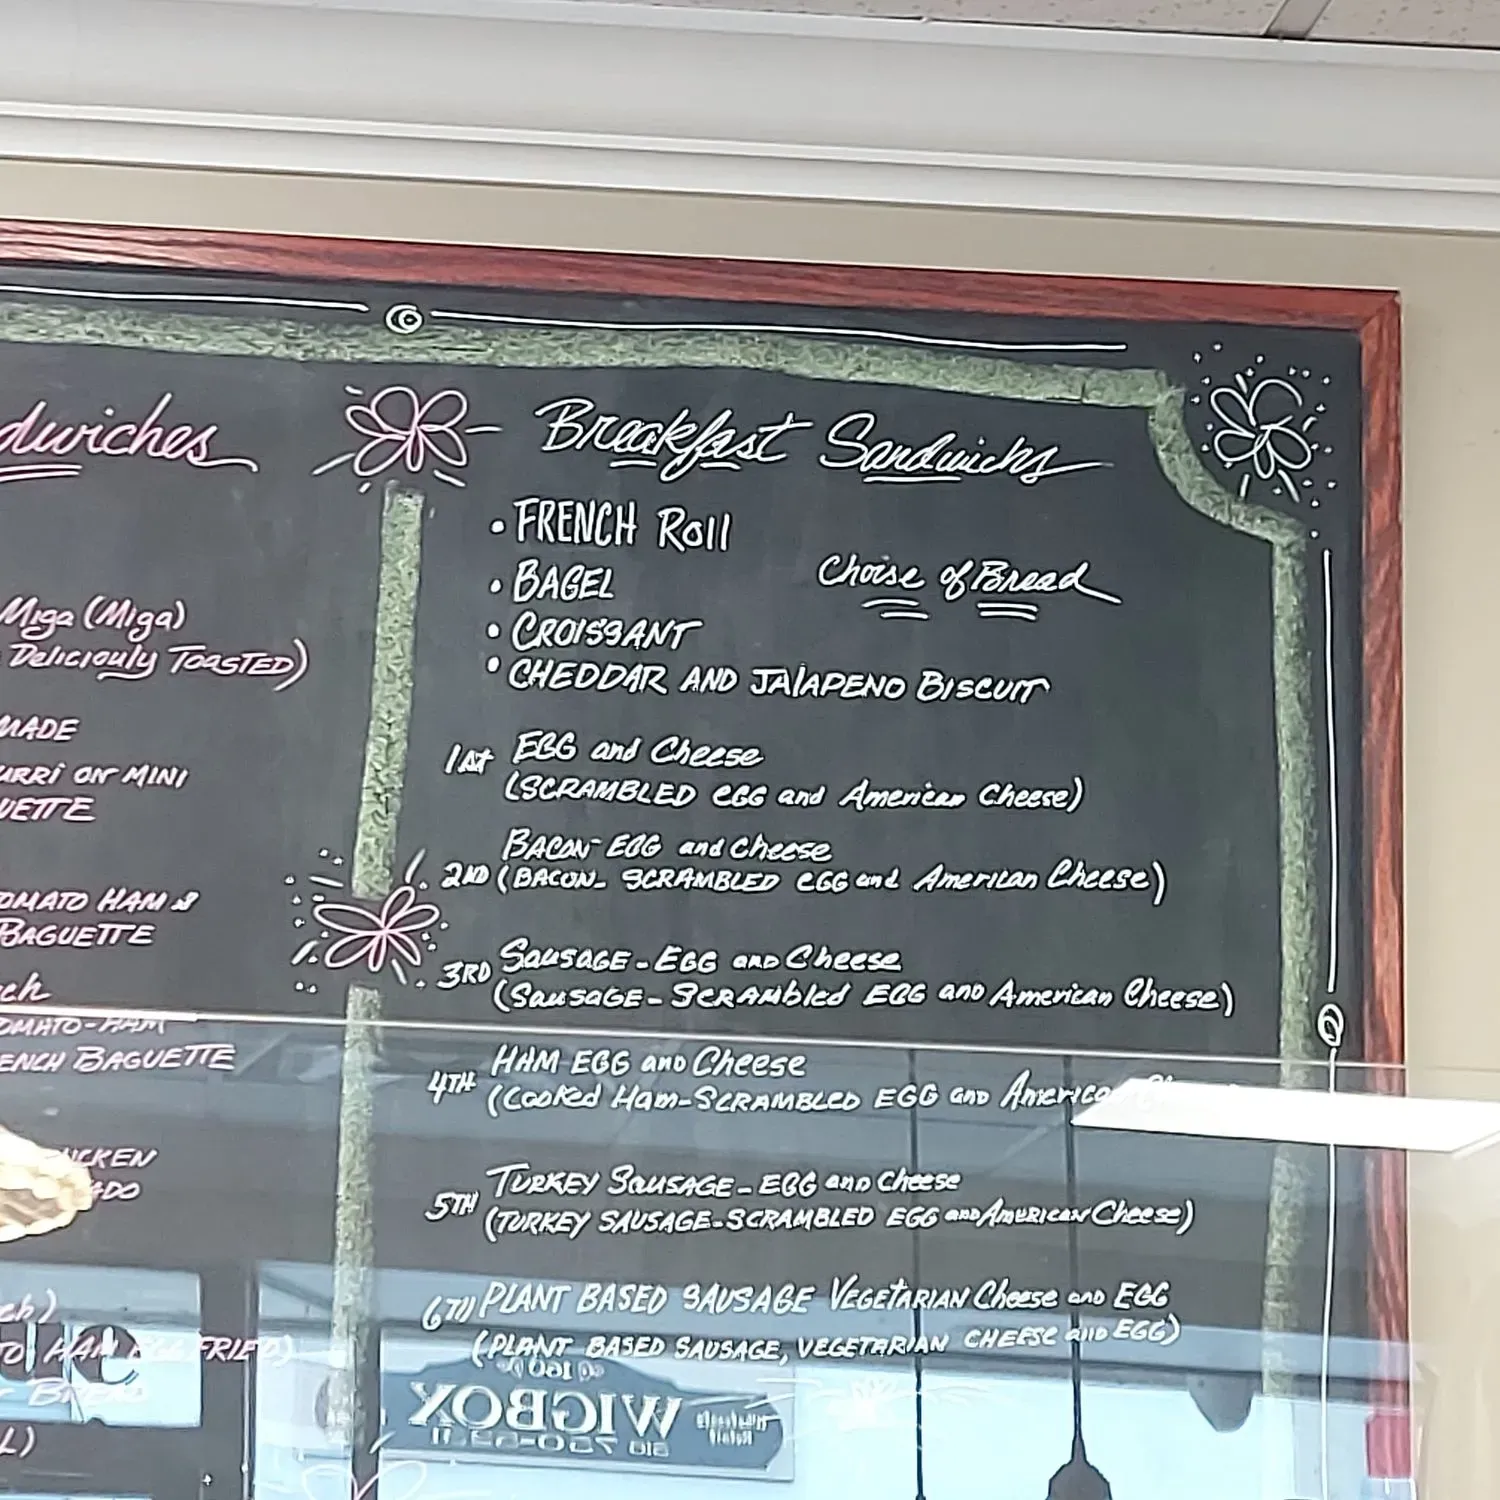 dwiches
Miga (Miga)
Deliciouly Toasted)
MADE
URRi on MINI
UETTE
OMATO HAM &
BAGUETTE
ch
OMATO-HAM
ENCH BAGUETTE
ICKEN
ADO
ch)
TO HAM EGG FRIED)
BREAD
L)
Breakfast Sandwichs
• FRENCH Roll
• BAGEL
• CROISSANT
• CHEDDAR AND JALAPENO BISCUIT
Choise of Bread
1st EGG and Cheese
(SCRAMBLED EGG and American Cheese)
BACON-EGG and cheese
2ND (BACON- SCRAMBLED EGG and American Cheese)
3RD SAUSAGE-EGG AND Cheese
(SAUSAGE-SCRAMBLED EGG AND American Cheese)
4TH HAM EGG AND Cheese
(Cooked Ham-SCRAMBLED EGG and American
5TH TURKEY SAUSAGE-EGG AND Cheese
(TURKEY SAUSAGE-SCRAMBLED EGG AND AMERICAN Cheese)
6TH PLANT BASED SAUSAGE VEGETARIAN Cheese AND EGG
(PLANT BASED SAUSAGE, VEGETARIAN CHEESE AND EGG)
WIGBOX